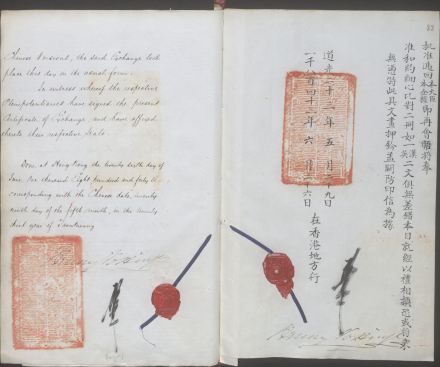 Chinese Versions, the said Exchange took
place this day in the usual form.
In witness whereof the respective
Plenipotentiaries have signed the present
Certificate of Exchange and have affixed
thereto their respective Seals.
Done at Hong Kong the twenty sixth day of
June One thousand Eight hundred and forty
corresponding with the Chinese date, twenty
ninth day of the fifth month, in the twenty
third year of Taoukwang
Henry Pottinger
批准過回本大臣本公使即再會晤將奉
准和約細心比對二冊如一英漢二文俱無差錯本日就經以禮相換恐或有
無憑特此具文畫押鈐蓋關防印信為據
道光二十三年五月二十九日
一千八百四十三年六月二十六日
在香港地方行
Henry Pottinger